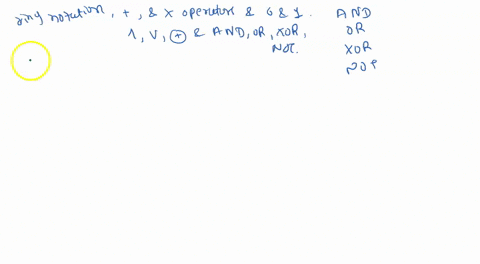 ring notation, +, & x operators & 0 & 1.
∧, ∨, ⊕ & AND, OR, XOR,
NOT.
AND
OR
XOR
NOT